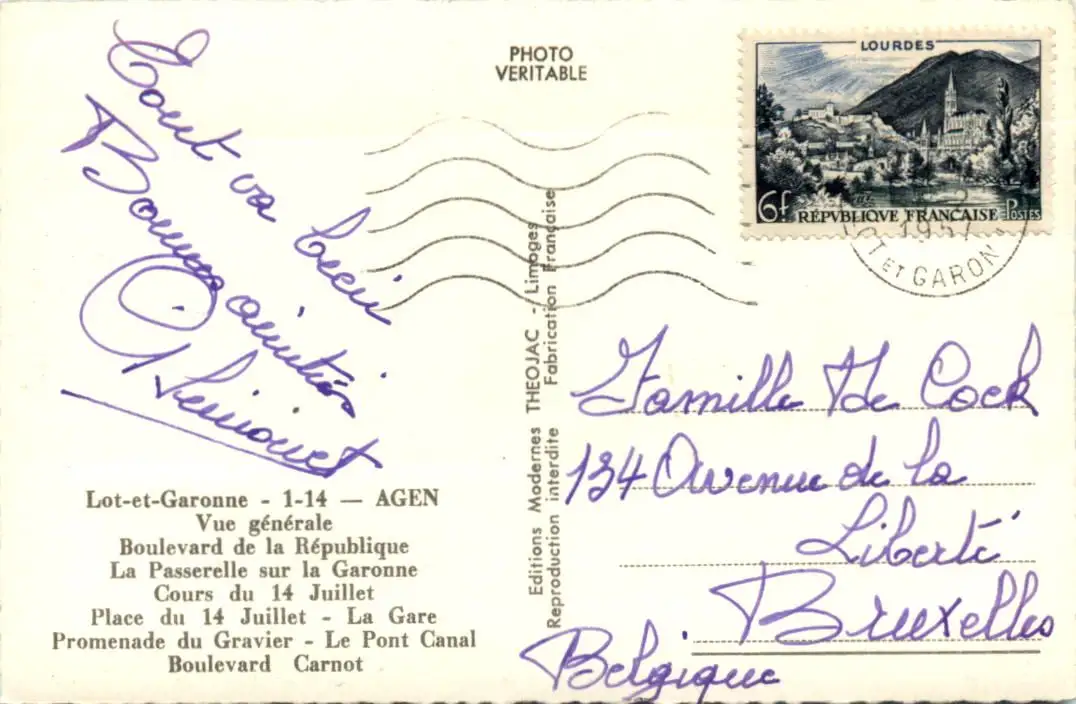 PHOTO
VERITABLE
LOURDES
6f RÉPVBLIQVE FRANÇAISE POSTES
1957
LOT ET GARONNE
Tout va bien
Bonnes amitiés
Lot-et-Garonne - 1-14 — AGEN
Vue générale
Boulevard de la République
La Passerelle sur la Garonne
Cours du 14 Juillet
Place du 14 Juillet - La Gare
Promenade du Gravier - Le Pont Canal
Boulevard Carnot
Editions Modernes THEOJAC - Limoges
Reproduction interdite Fabrication Française
Famille De Cock
134 Avenue de la
Liberté
Bruxelles
Belgique